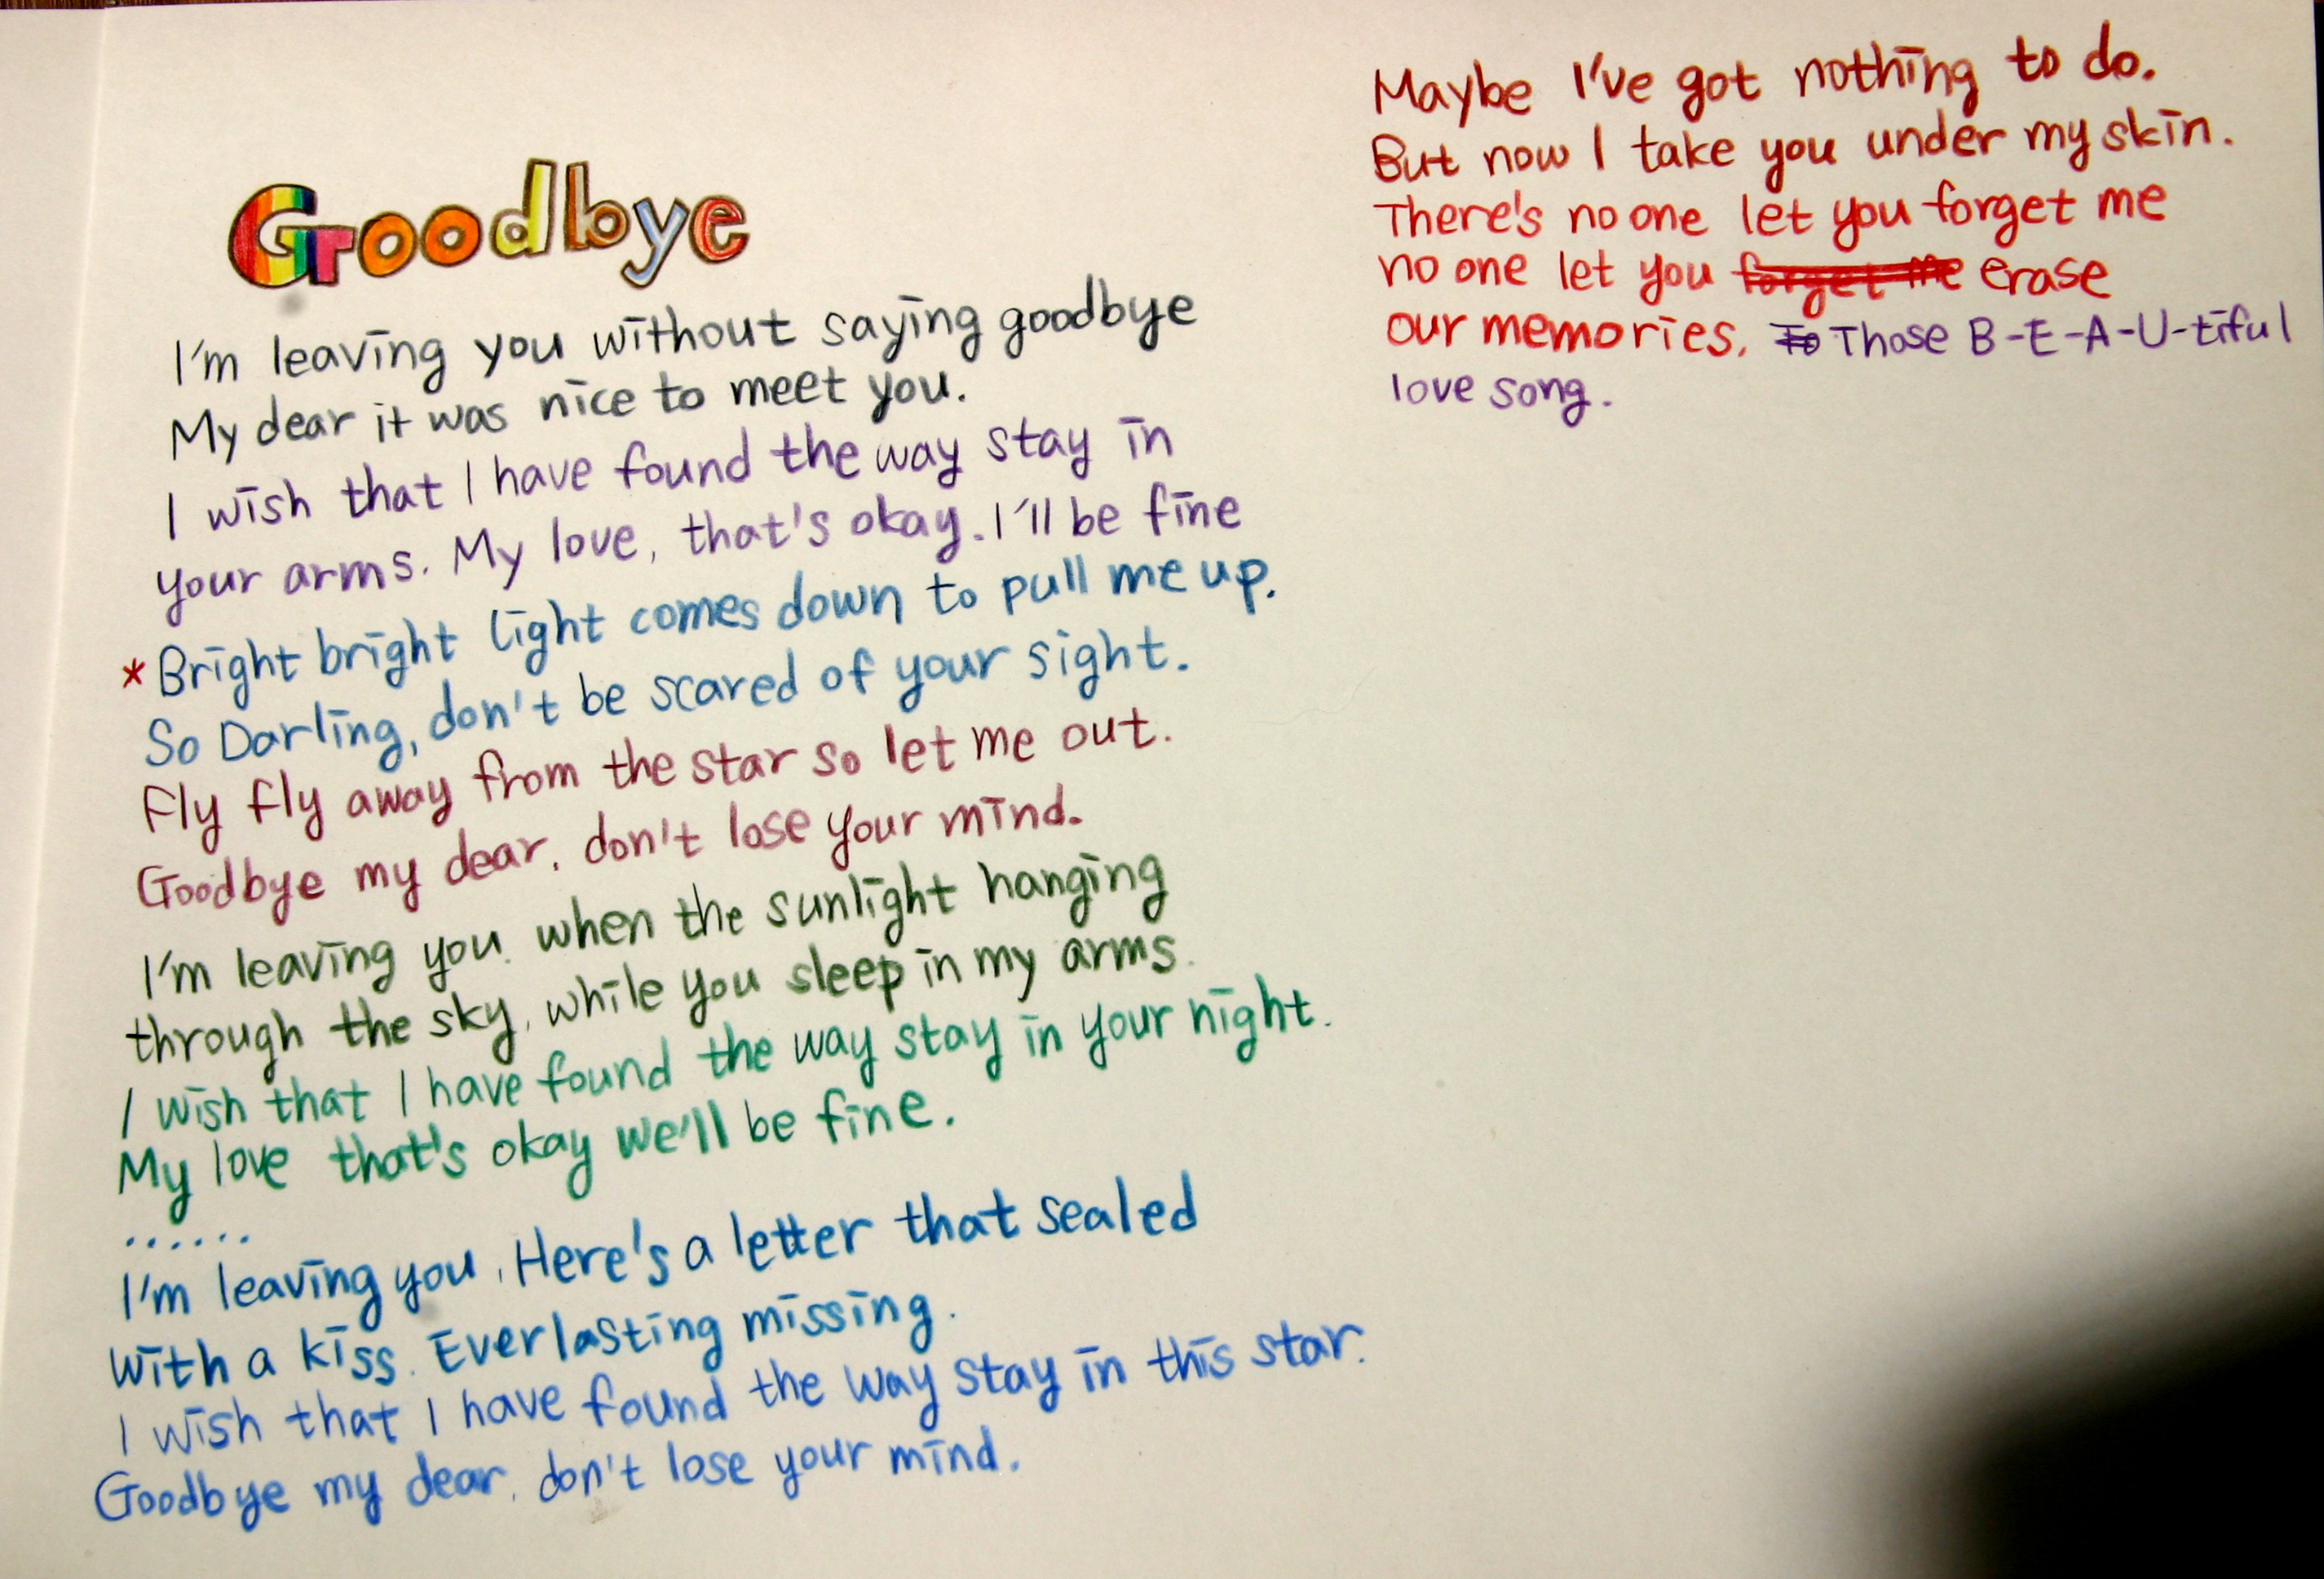 Goodbye
I'm leaving you without saying goodbye
My dear it was nice to meet you.
I wish that I have found the way stay in
your arms. My love, that's okay. I'll be fine
*Bright bright light comes down to pull me up.
So Darling, don't be scared of your sight.
Fly fly away from the star so let me out.
Goodbye my dear, don't lose your mind.
I'm leaving you when the sunlight hanging
through the sky, while you sleep in my arms.
I wish that I have found the way stay in your night.
My love that's okay we'll be fine.
......
I'm leaving you, Here's a letter that sealed
with a kiss. Everlasting missing.
I wish that I have found the way stay in this star.
Goodbye my dear, don't lose your mind.
Maybe I've got nothing to do.
But now I take you under my skin.
There's no one let you forget me
no one let you forget me erase
our memories. To Those B-E-A-U-tiful
love song.